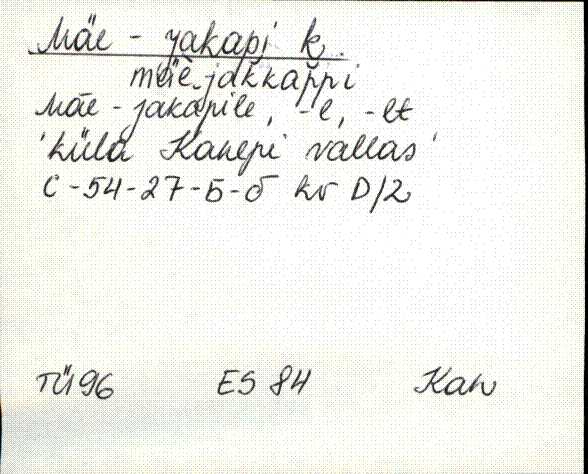 Mäe-jakapi k.
mäe-jakkappi
Mäe-jakapile, -l, -lt
'küla Kanepi vallas'
C-54-27-Б-б kv D/2
TÜ 96 ES 84 Kan